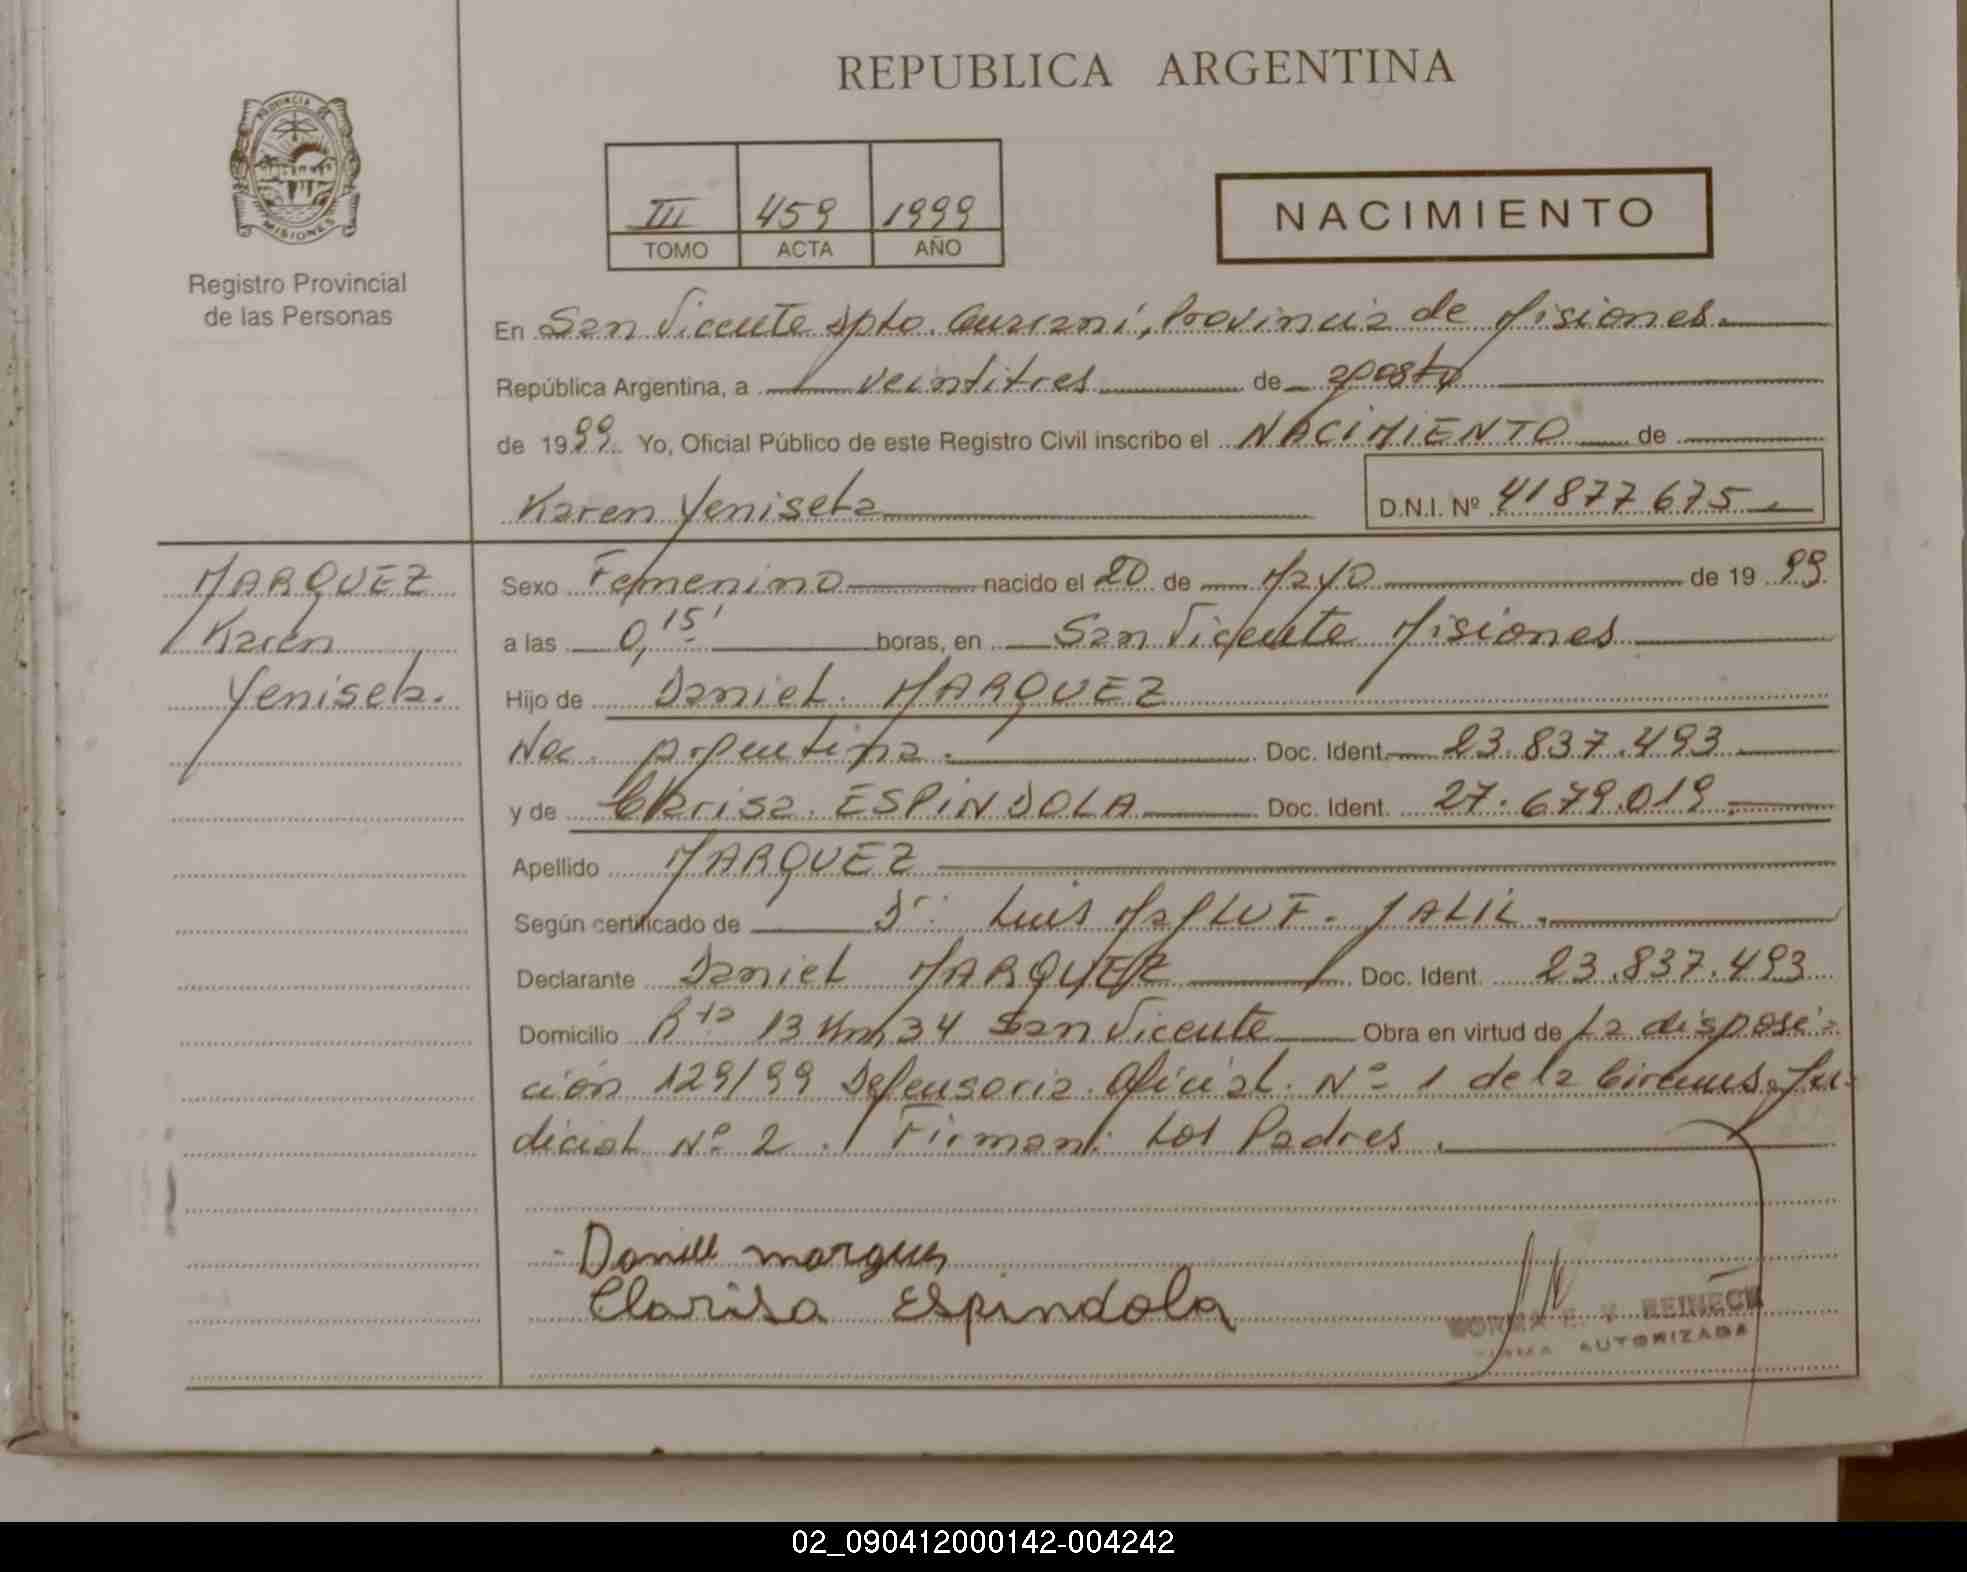 REPUBLICA ARGENTINA
PROVINCIA DE
MISIONES
Registro Provincial
de las Personas
III 459 1999
TOMO ACTA AÑO
NACIMIENTO
En San Vicente dpto. Guarani, Provincia de Misiones
República Argentina, a veintitres de agosto
de 1999 Yo, Oficial Público de este Registro Civil inscribo el NACIMIENTO de
Karen Yenisela D.N.I. Nº 41877675
MARQUEZ
Karen
Yenisela.
Sexo Femenino nacido el 20 de Mayo de 19 99
a las 0,15' boras, en San Vicente Misiones
Hijo de Daniel MARQUEZ
Nac. Argentina. Doc. Ident. 23.837.493
y de Clarisa ESPINDOLA Doc. Ident. 27.679.019
Apellido MARQUEZ
Según certificado de Dr. Luis MaLUF JALIL.
Declarante Daniel MARQUEZ Doc. Ident. 23.837.493
Domicilio Rta 13 Km 34 San Vicente Obra en virtud de La disposi-
ción 129/99 Defensoria Oficial Nº 1 de la Circuns. Ju-
dicial Nº 2. Firman: Los Padres.
Daniel marques
Clarisa Espindola
NORMA E. V. REINECK
FIRMA AUTORIZADA
02_090412000142-004242